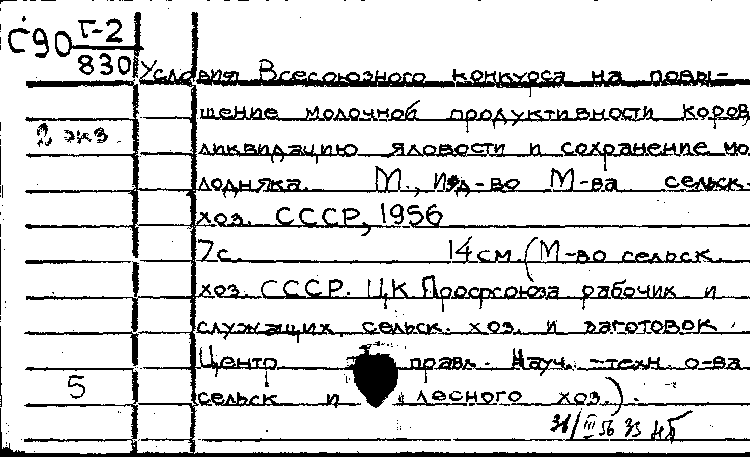 С90 Г-2
830
Условия Всесоюзного конкурса на повы-
шение молочной продуктивности коров
2 экз.
ликвидацию яловости и сохранение мо
лодняка. М., Изд-во М-ва сельск.
хоз. СССР, 1956
7с. 14см. (М-во сельск.
хоз. СССР. ЦК Профсоюза рабочих и
служащих сельск. хоз. и заготовок.
Центр правл. Науч.-техн. о-ва
5
сельск и лесного хоз.).
31/III 56